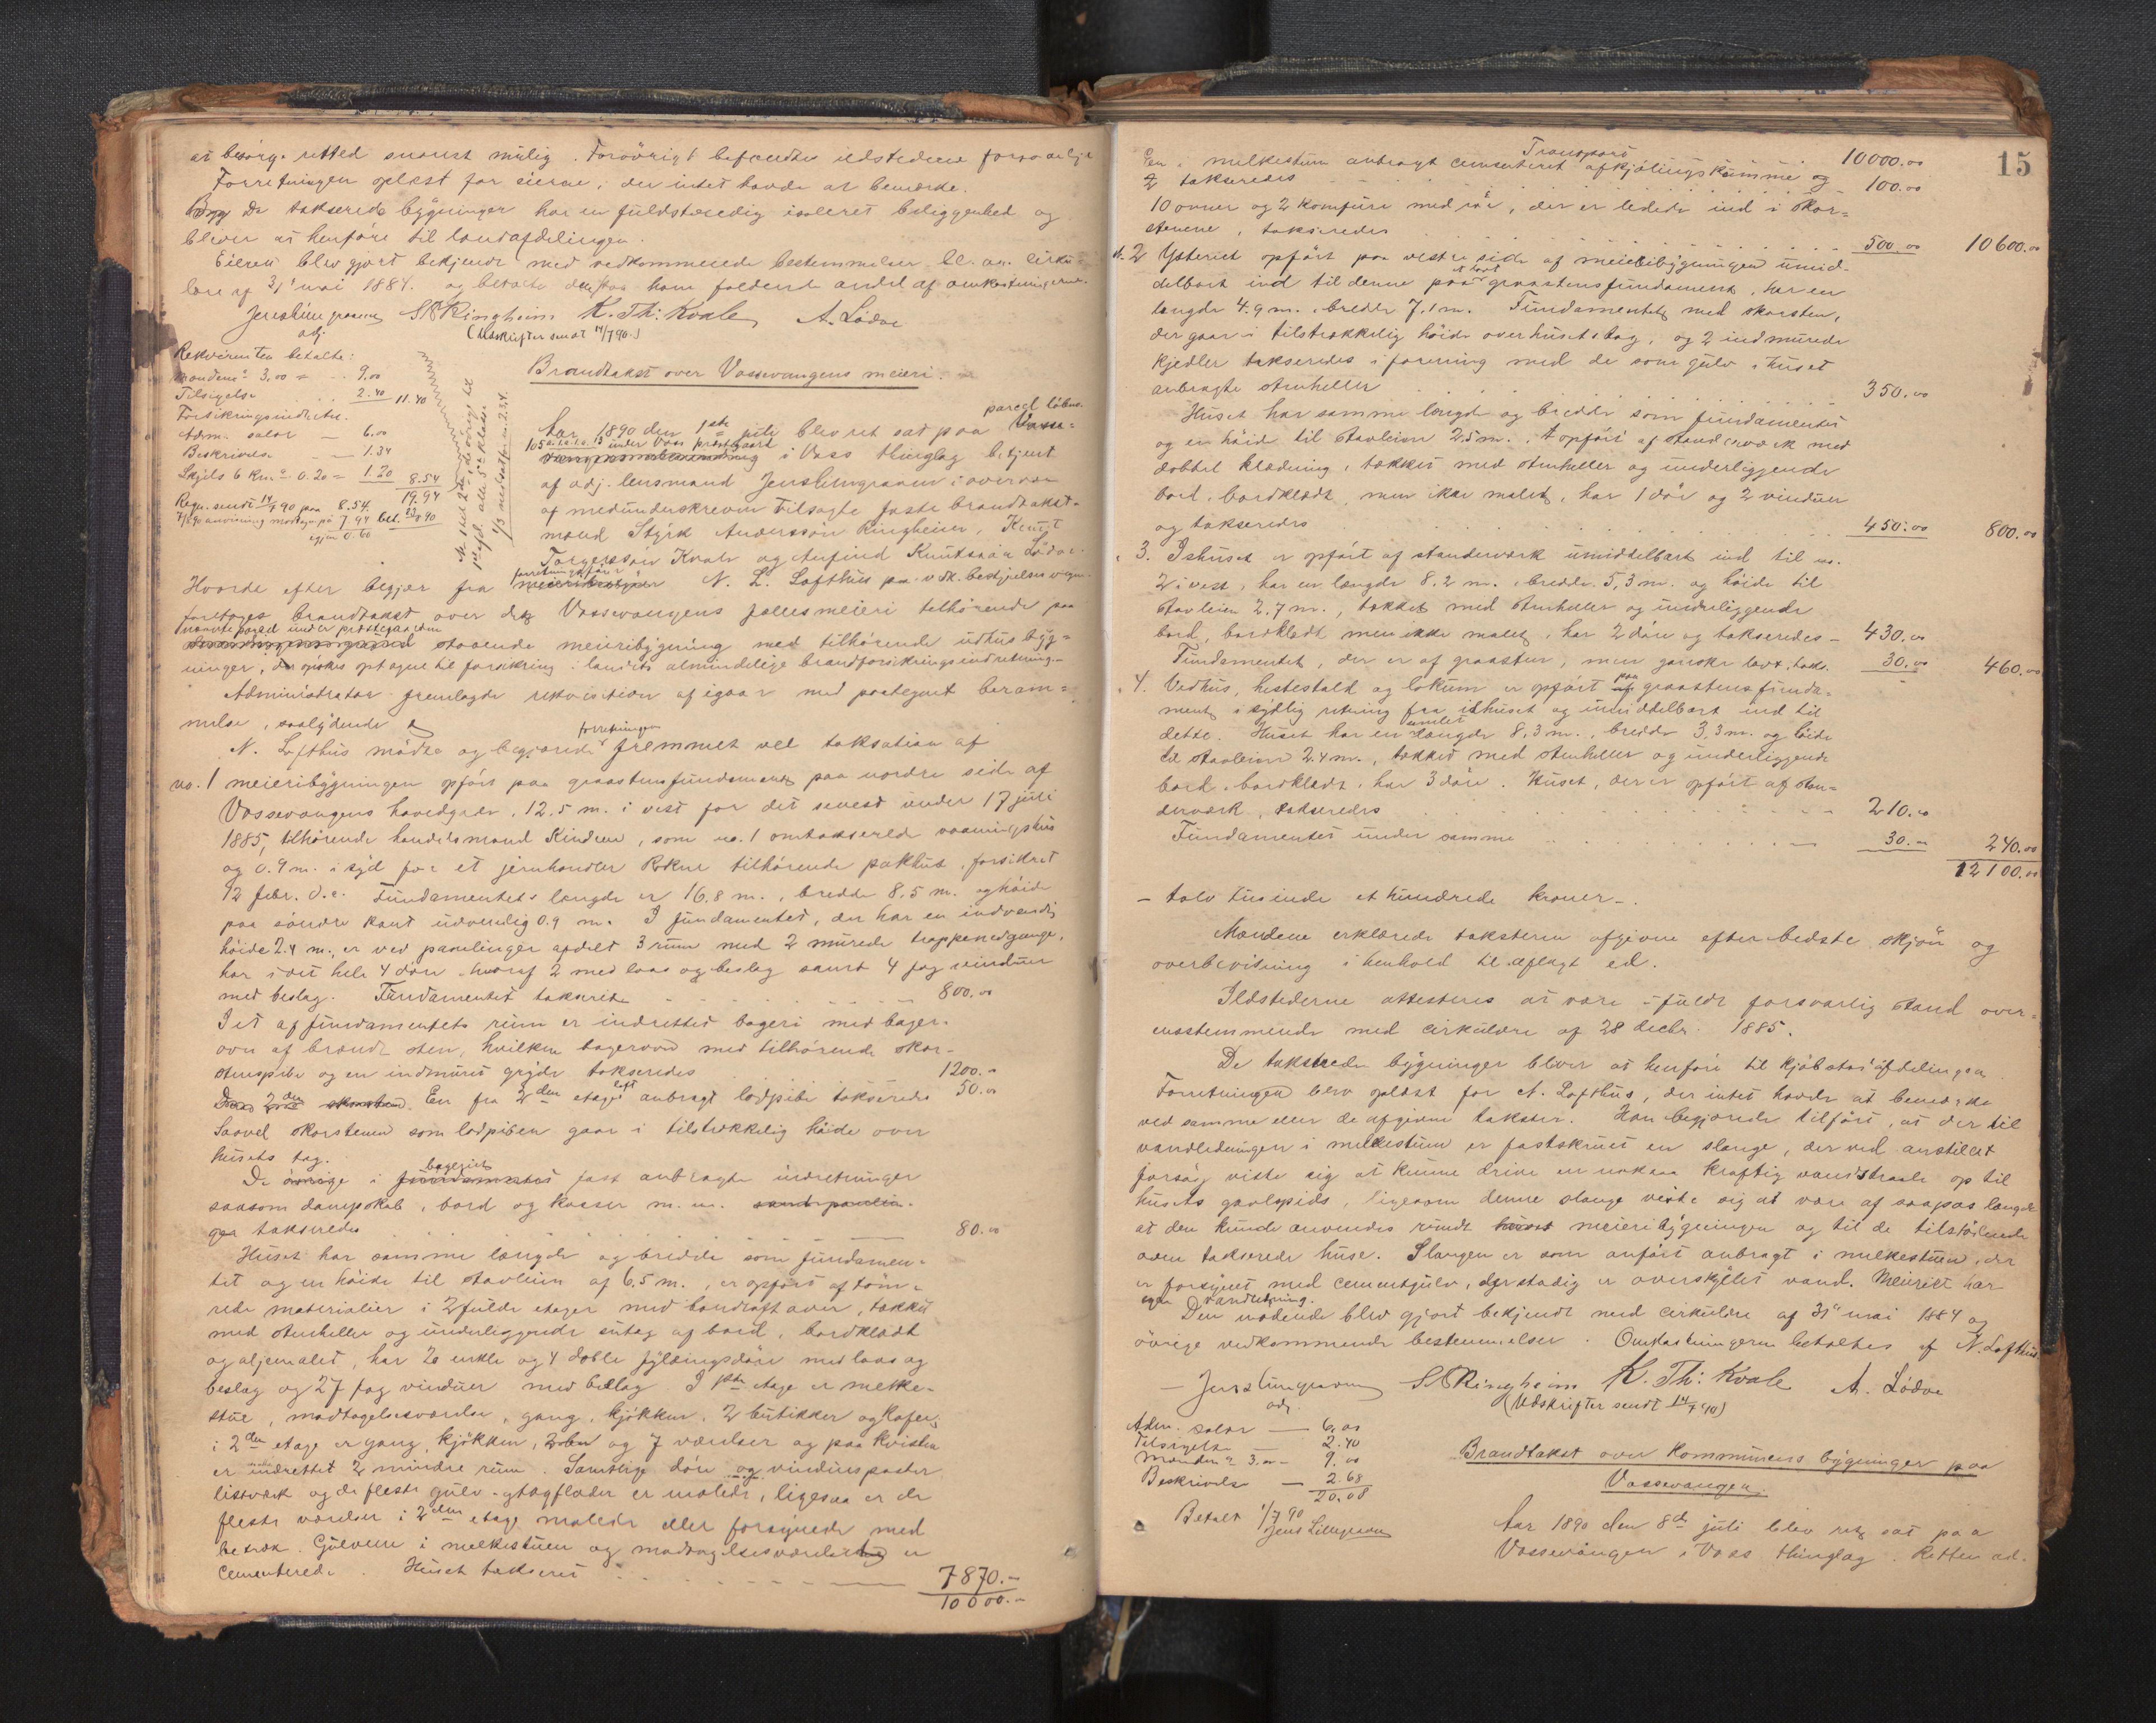 at besörge rettet snarest mulig. Forövrigt befandtes ildstederne forsvarlige
Forretningen oplæst for eierne, der intet havde at bemærke.
De takserede bygninger har en fuldstændig isoleret beliggenhed og
bliver at henföre til landafdelingen.
Eieren blev gjort bekjendt med vedkommende bestemmelser bl. an. cirku-
lære af 31' mai 1884. og betalte den paa ham faldende andel af omkostningerne.
Jens Lillegraven S A Ringheim K. Th: Kvale A. Lödve
adj
(Udskrifter sendt 14/7 90.)
Rekvirenten betalte:
Mændene á 3,00 = 9.00
Tilsigelse 2.40 11.40
Forsikringsindretn.
Adm. salær — 6.00
Beskrivelse — 1.34
Skyds 6 km á 0.20 = 1.20 8.54
19.94
Regn. sendt 14/7 90 paa 8.54.
Brandtakst over Vossevangens meieri.
Aar 1890 den 1ste juli blev ret sat paa parcel löbno.
105 under Voss præstgaard i Voss thinglag betjent
af adj. lensmand Jens Lillegraven i overvær
af medunderskrevne tilsagte faste brandtakst-
mænd Styrk Andersson Ringheim, Knut
Torgersson Kvale og Anfind Knutsson Lödve.
Hvorda efter begjær fra forretningsförer N. L. Lofthus paa vedk. bestyrelses vegne
foretoges brandtakst over det Vossevangens fællesmeieri tilhörende paa
nævnte parcel under præstegaarden staaende meieribygning med tilhörende udhusbyg-
ninger, der önskes optagne til forsikring i landets almindelige brandforsikringsindretning.
Administrator fremlagde rekvisition af igaar med paategnet beram-
melse, saalydende
N. Lofthus mödte og begjærede forretningen fremmet ved taksation af
no. 1 meieribygningen opfört paa graastensfundament paa nordre side af
Vossevangens hovedgade, 12.5 m. i vest for det senest under 17 juli
1885, tilhörende handelsmand Kindem, som no. 1 omtakserede vaaningshus
og 0.9 m. i syd for et jernhandler Rokne tilhörende pakhus, forsikret
12 febr. d.a. Fundamentets længde er 16.8 m., bredde 8.5 m. og höide
paa söndre kant udvendig 0.9 m. I fundamentet, der har en indvendig
höide 2.4 m., er ved panelinger afdelt 3 rum med 2 murede trappenedgange,
har i det hele 4 döre hvoraf 2 med laas og beslag samt 4 fag vinduer
med beslag. Fundamentet takseredes 800.00
I et af fundamentets rum er indrettet bageri med bager-
ovn af brændt sten, hvilken bagerovn med tilhörende skor-
stenspibe og en indmuret gryde takseredes 1200.-
En fra 2den etages loft anbragt lodpibe takseredes 50.00
Saavel skorstenen som lodpiben gaar i tilstrækkelig höide over
husets tag.
De i bageriet fast anbragte indretninger
saasom dampskab, bord og kasser m. m.
takseredes 80.00
Huset har samme længde og bredde som fundamen-
tet og en höide til stavleien af 6.5 m., er opfört af töm-
rede materialier i 2 fulde etager med loft over, tækket
med stenheller og underliggende sutag af bord, bordklædt
og oljemalet, har 20 enkle og 4 doble fyldingsdöre med laas og
beslag og 27 fag vinduer med beslag. I 1ste etage er melke-
stue, modtagelsesværelse, gang, kjökken, 2 butikker og Kafe,
i 2den etage er gang, kjökken, og 7 værelser og paa kvisten
er indrettet 2 mindre rum. Samtlige döre og vinduesposter
listværk og de fleste gulv- og tagflader er malede, ligesaa er de
fleste værelser i 2den etage malede eller forsynede med
betræk. Gulvene i melkestuen og modtagelsesværelset er
cementerede. Huset takseres 7870.-
10000.-
15
Transport 10000.00
En i melkestuen anbragt cementeret afkjölingskumme og
takseredes 100.00
10 ovner og 2 komfurer med rör, der er ledede ind i skor-
stenene, takseredes 500.00 10600.00
no. 2 Ysteriet opfört paa vestre side af meieribygningen umid-
delbart ind til denne paa et lavt graastensfundament, har en
længde 4.9 m., bredde 7.1 m. Fundamentet med skorsten,
der gaar i tilstrækkelig höide over husets tag, og 2 indmurede
kjedler takseredes i forening med de som gulv i huset
anbragte stenheller 350.00
Huset har samme længde og bredde som fundamentet
og en höide til stavleien 2.5 m., opfört af standerværk med
dobbel klædning, tækket med stenheller og underliggende
bord, bordklædt, men ikke malet, har 1 dör og 2 vinduer
og takseredes 450.00 800.00
3. Ishuset er opfört af standerværk umiddelbart ind til no.
2 i vest, har en længde 8.2 m., bredde 5,3 m. og höide til
stavleien 2.7 m., tækket med stenheller og underliggende
bord, bordklædt men ikke malet, har 2 döre og takseredes - 430.00
Fundamentet, der er af graasten, men ganske lavt, taks. 30.00 460.00
4. Vedhus, hestestald og lokum er opfört paa graastensfunda-
ment i sydlig retning fra ishuset og umiddelbart ind til
dette. Huset har en samlet længde 8,3 m., bredde 3,3 m. og höide
til stavleien 2.4 m., tækket med stenheller og underliggende
bord, bordklædt, har 3 döre. Huset, der er opfört af stan-
derværk, takseredes 210.00
Fundamentet under samme 30.- 240.00
12100.00
- tolv tusinde et hundrede kroner -.
Mændene erklærede taksterne afgivne efter bedste skjön og
overbevisning i henhold til aflagt ed.
Ildstederne attesteres at være i fuldt forsvarlig stand over-
ensstemmende med cirkulære af 28 decbr. 1885.
De takserede bygninger bliver at henföre til kjöbstadsafdelingen
Forretningen blev oplæst for N. Lofthus, der intet havde at bemærke
ved samme eller de afgivne takster. Han begjærede tilfört, at der til
vandledningen i melkestuen er fastskruet en slange, der ved anstillet
forsög viste sig at kunne drive en noksaa kraftig vandstraale op til
husets gavlspids, ligesom denne slange viste sig at være af saapas længde
at den kunde anvendes rundt meieribygningen og til de tilstödende
oven takserede huse. Slangen er som anfört anbragt i melkestuen, der
er forsynet med cementgulv, der stadig er overskyllet vand. Meieriet har
egen vandledning.
Den mödende blev gjort bekjendt med cirkulære af 31' mai 1884 og
övrige vedkommende bestemmelser. Omkostningerne betaltes af N. Lofthus
Jens Lillegraven S A Ringheim K. Th: Kvale A. Lödve
adj.
(Udskrifter sendt 14/7 90)
Adm. salær — 6,00
Tilsigelse — 2.40
Mændene á 3.00 - 9.00
Beskrivelse — 2.68
20.08
Betalt 1/7 90
Jens Lillegraven
Brandtakst over Kommunens bygninger paa
Vossevangen.
Aar 1890 den 8de juli blev ret sat paa
Vossevangen i Voss thinglag. Retten ad-